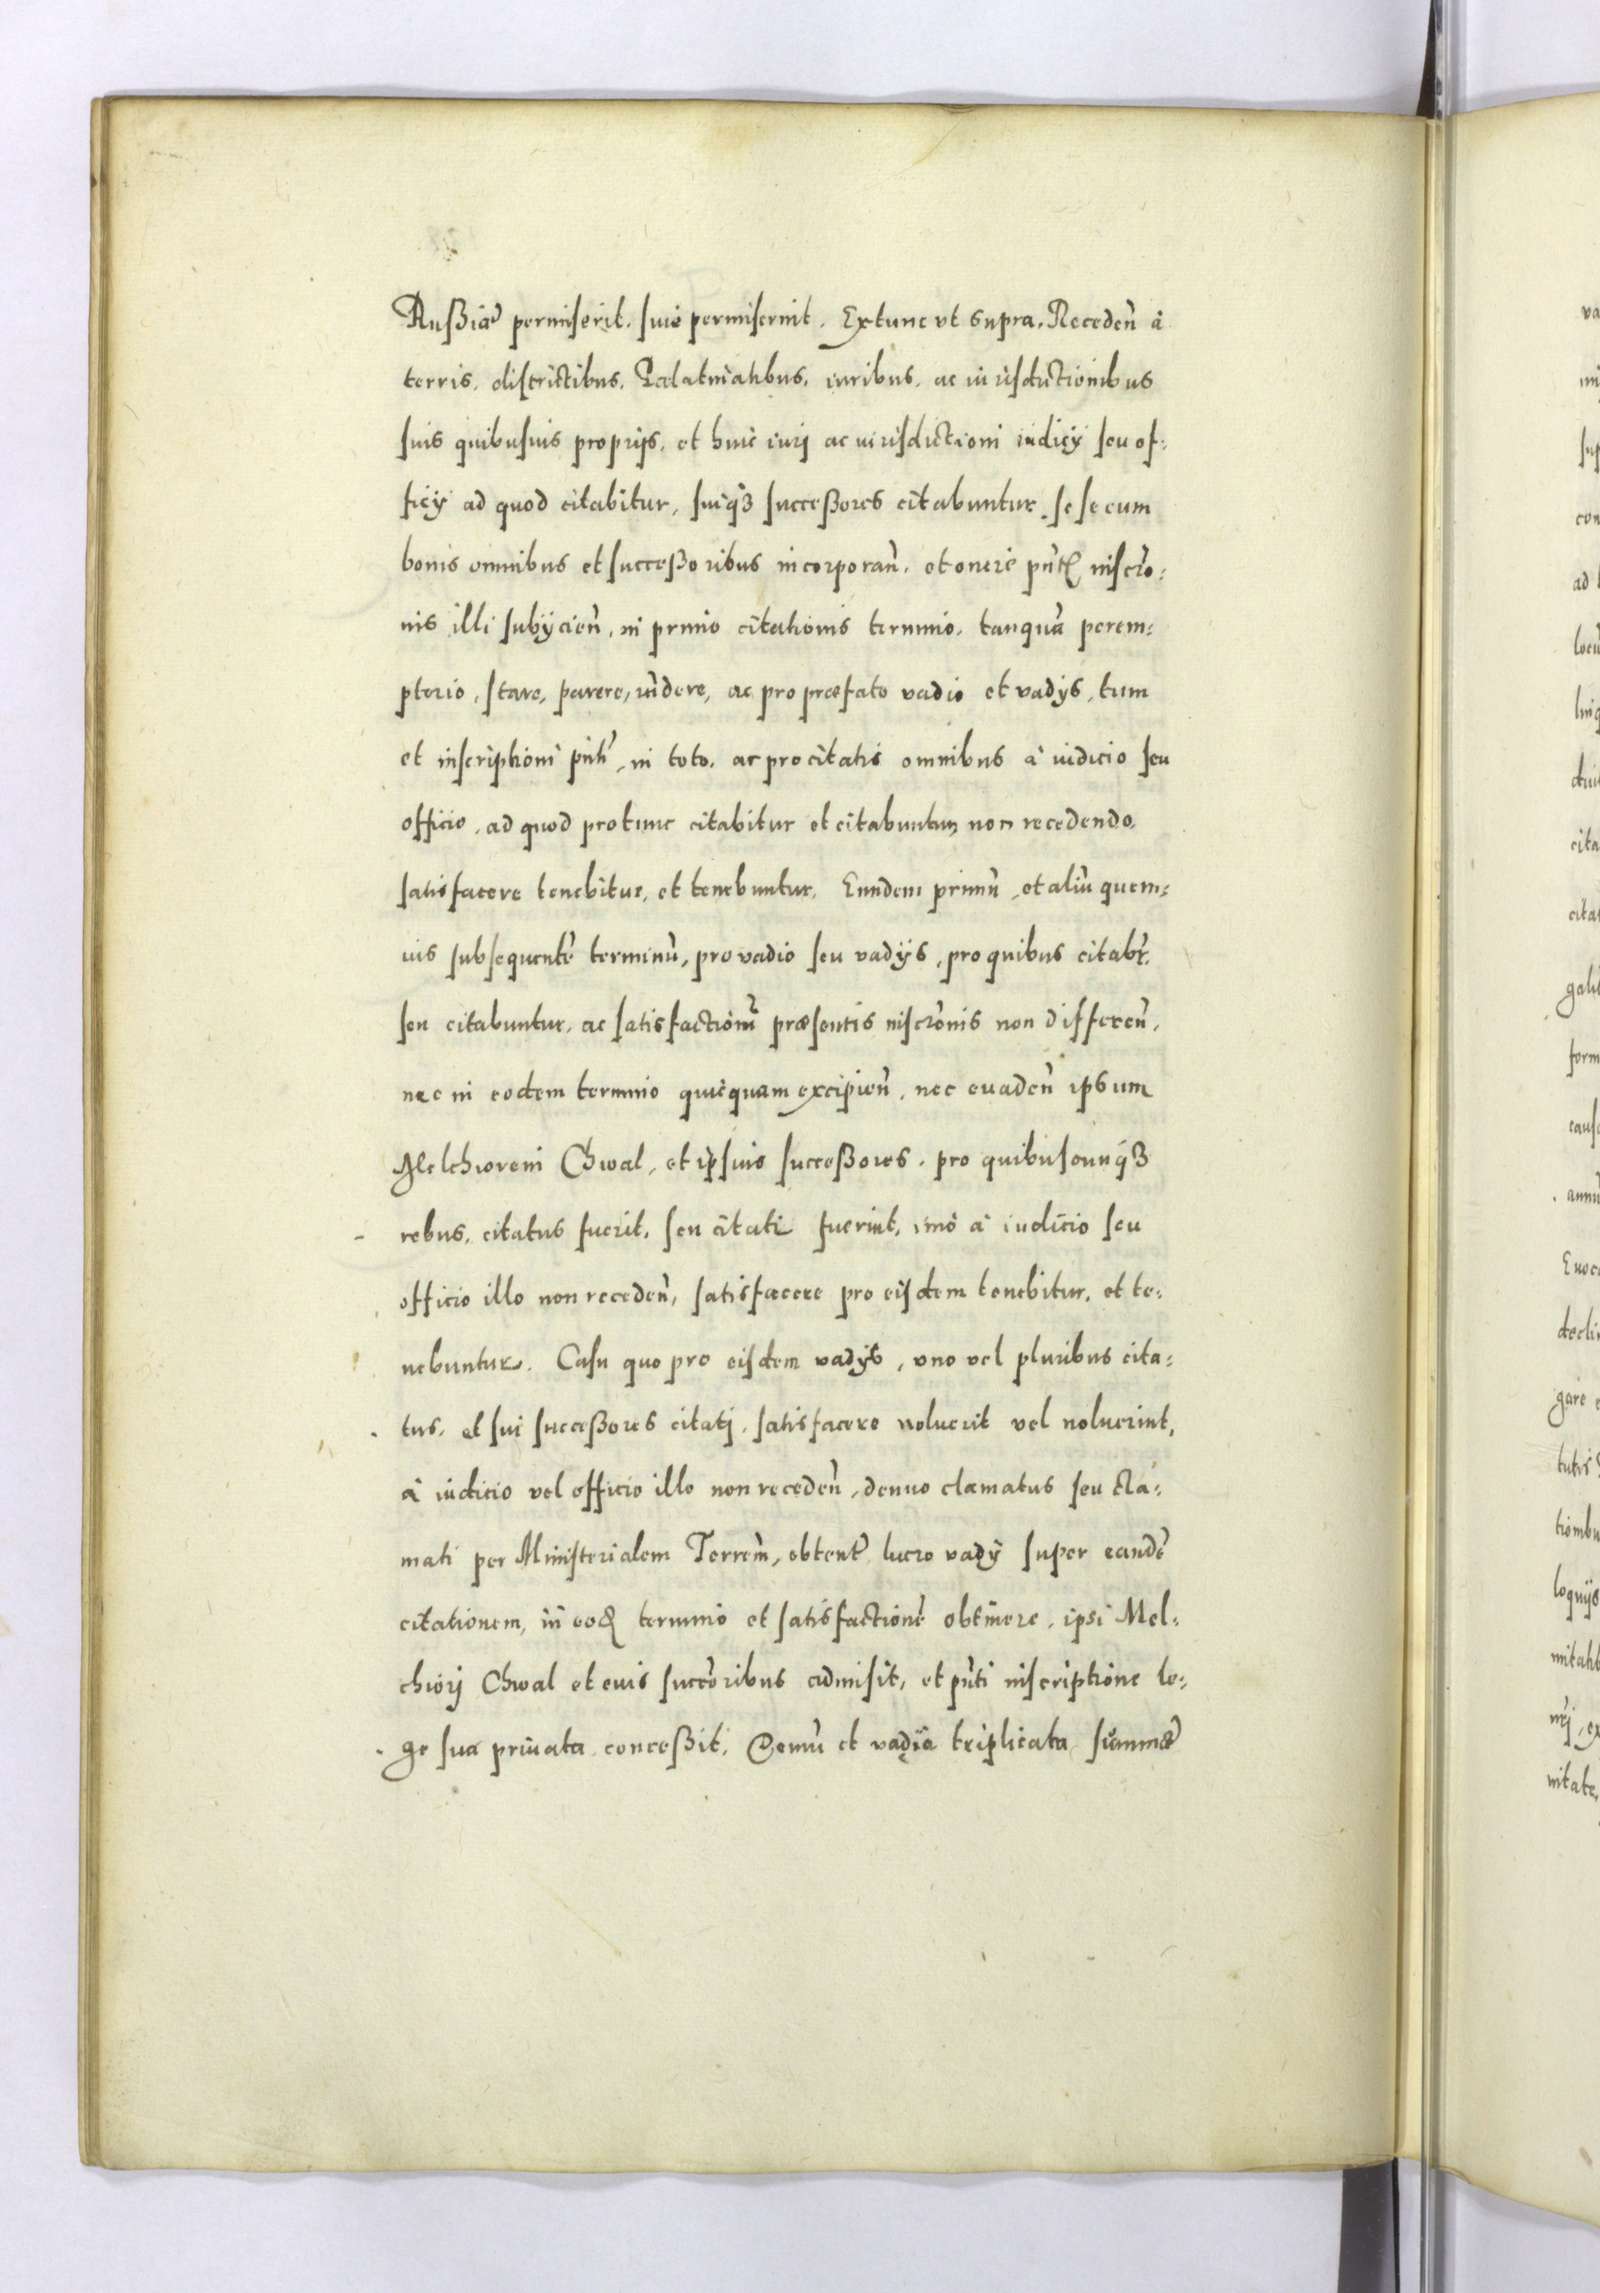 Rußiæ permiserit. sive permiserint. Extunc ut supra. Recedeñ à
terris. districtibus. Palatinatibus. iuribus. ac iurisdictionibus
suis quibusuis proprijs. et huic iurj ac iurisdictioni iudicÿ seu of:
ficÿ ad quod citabitur, suiq3 succeßores citabuntur. se se cum
bonis omnibus et succeßoribus incorporañ. et onere pñtꝭ inscr̃o:
nis illi subÿcieñ, in primo citationis termino. tanquã perem:
ptorio, stare, parere, rñdere, ac pro præfato vadio et vadÿs, tum
et inscriptioni pñti, in toto. ac pro citatis omnibus à iudicio seu
officio. ad quod protunc citabitur et citabuntur, non recedendo.
satisfacere tenebitur, et tenebuntur. Eundem primũ, et aliũ quem:
uis subsequentẽ terminũ, pro vadio seu vadÿs, pro quibus citabr̃.
seu citabuntur. ac satisfactionẽ præsentis inscr̃onis non differeñ.
nec in eodem termino quicquam excipieñ, nec euadeñ ipsum
Melchiorem Chwal, et ipsius succeßores. pro quibuscunq́3
rebus. citatus fuerit. seu citati fuerint, imò à iudicio seu
officio illo non recedeñ, satisfacere pro eisdem tenebitur. et te:
nebuntur. Casu quo pro eisdem vadÿs, uno vel pluribus cita:
tus. et sui succeßores citatj. satisfacere noluerit vel noluerint,
à iudicio vel officio illo non recedeñ, denuo clamatus seu cla:
mati per Ministerialem Terreñ, obtent̃ lucro vadÿ super eandẽ
citationem, in eoꝺ termino et satisfactionẽ obtinere. ipsi Mel:
chiorj Chwal et euis succr̃oribus admisit, et pñti inscriptione le:
ge sua priuata conceßit. Demũ et vadia triplicata summæ